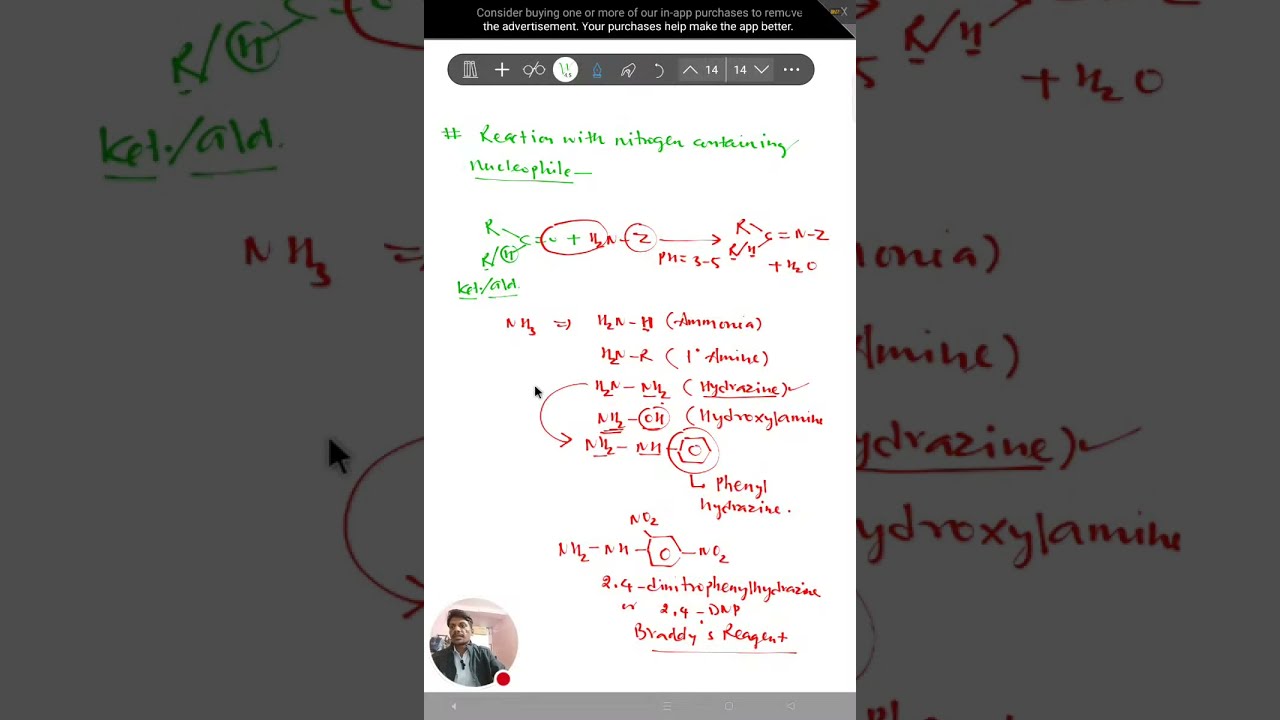 Consider buying one or more of our in-app purchases to remove
the advertisement. Your purchases help make the app better.
X
14 14
# Reaction with nitrogen containing
Nucleophile —
R
C=O + H2N-Z → R
C=N-Z
R/H
PH=3-5
R/H
+ H2O
Ket./ald.
NH3 ⇒ H2N-H (Ammonia)
H2N-R (1° Amine)
H2N-NH2 (Hydrazine)
NH2-OH (Hydroxylamine
NH2-NH-
↳ Phenyl
hydrazine.
NO2
NH2-NH- -NO2
2.4-dinitrophenylhydrazine
or 2.4-DNP
Braddy's Reagent
R/H
Ket./ald.
NH3
R/H
5
+ H2O
onia)
Amine)
drazine)
ydroxylamine